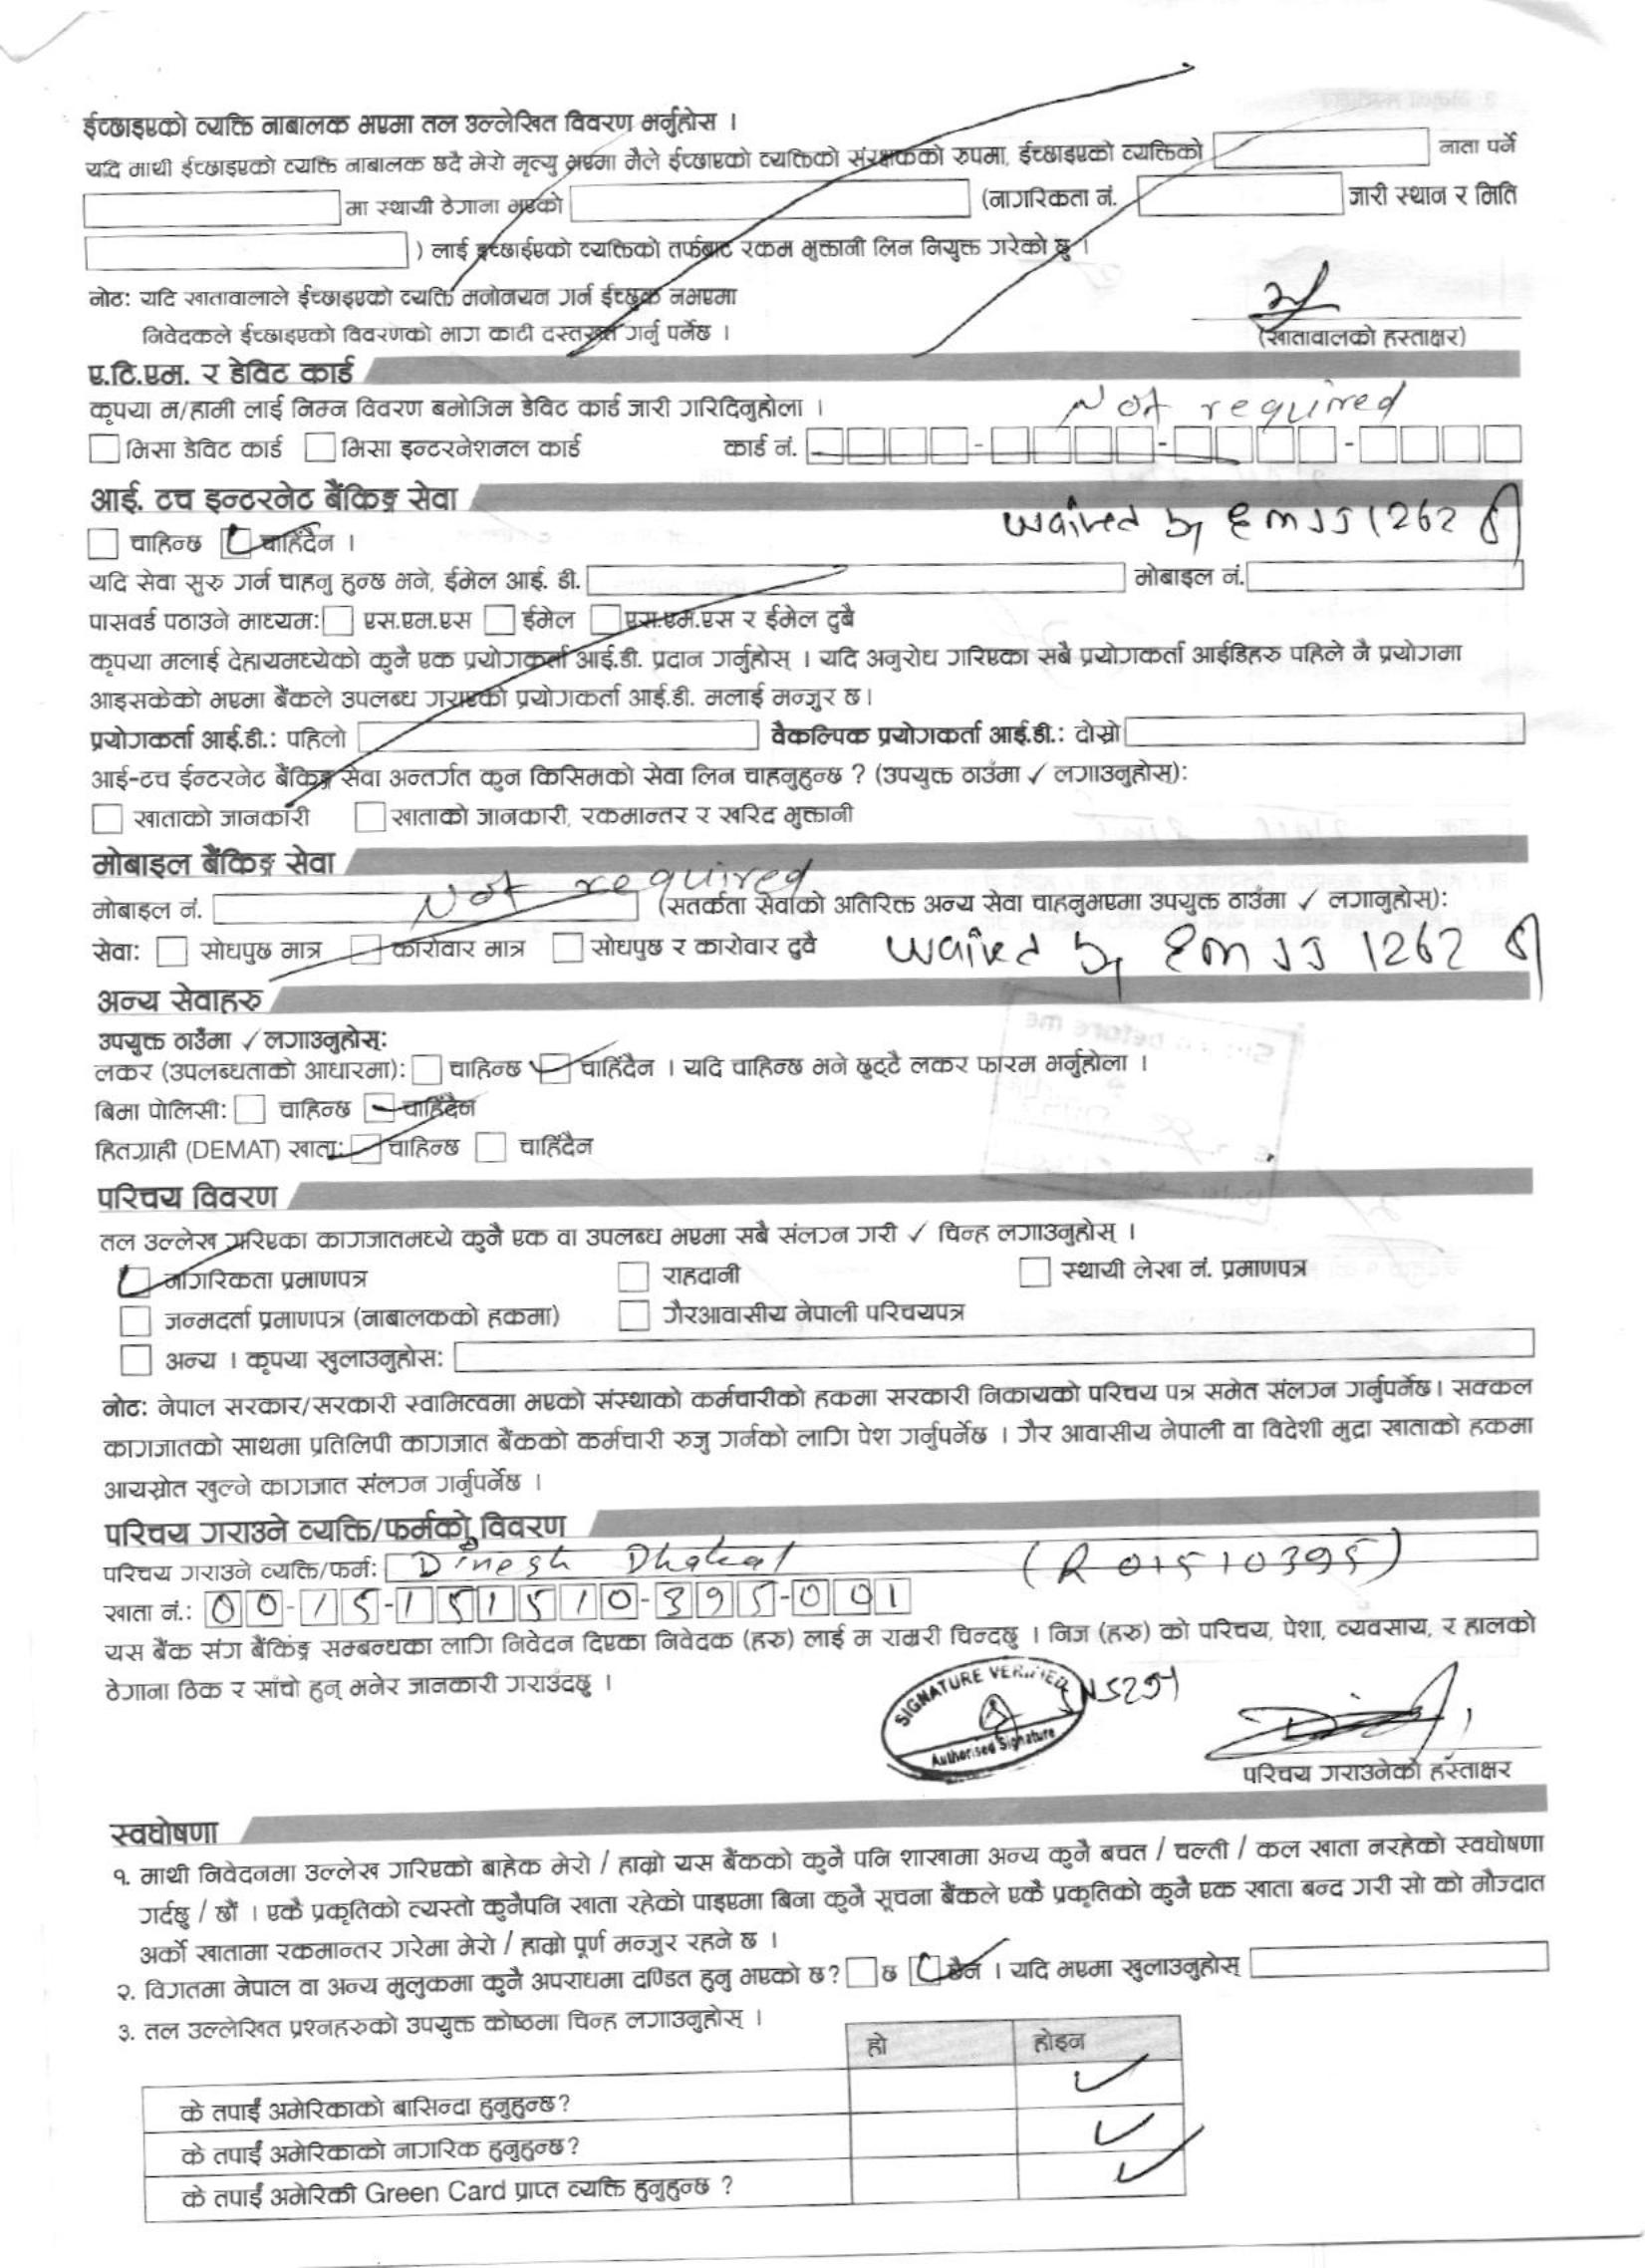 ईच्छाइएको व्यक्ति नाबालक भएमा तल उल्लेखित विवरण भर्नुहोस ।
यदि माथी ईच्छाइएको व्यक्ति नाबालक छदै मेरो मृत्यु भएमा मैले ईच्छाएको व्यक्तिको संरक्षकको रुपमा, ईच्छाइएको व्यक्तिको नाता पर्ने
मा स्थायी ठेगाना भएको (नागरिकता नं. जारी स्थान र मिति
) लाई इच्छाईएको व्यक्तिको तर्फबाट रकम भुक्तानी लिन नियुक्त गरेको छु ।
नोट: यदि खातावालाले ईच्छाइएको व्यक्ति मनोनयन गर्न ईच्छुक नभएमा
निवेदकले ईच्छाइएको विवरणको भाग काटी दस्तखत गर्नु पर्नेछ ।
(खातावालको हस्ताक्षर)
ए.टि.एम. र डेविट कार्ड
कृपया म/हामी लाई निम्न विवरण बमोजिम डेविट कार्ड जारी गरिदिनुहोला । Not required
भिसा डेविट कार्ड भिसा इन्टरनेशनल कार्ड कार्ड नं.
आई. टच इन्टरनेट बैंकिङ्ग सेवा
waived by EM JJ 1262
चाहिन्छ चाहिँदैन ।
यदि सेवा सुरु गर्न चाहनु हुन्छ भने, ईमेल आई. डी. मोबाइल नं.
पासवर्ड पठाउने माध्यम: एस.एम.एस ईमेल एस.एम.एस र ईमेल दुबै
कृपया मलाई देहायमध्येको कुनै एक प्रयोगकर्ता आई.डी. प्रदान गर्नुहोस् । यदि अनुरोध गरिएका सबै प्रयोगकर्ता आईडिहरु पहिले नै प्रयोगमा
आइसकेको भएमा बैंकले उपलब्ध गराएको प्रयोगकर्ता आई.डी. मलाई मन्जुर छ।
प्रयोगकर्ता आई.डी.: पहिलो वैकल्पिक प्रयोगकर्ता आई.डी.: दोस्रो
आई-टच ईन्टरनेट बैंकिङ्ग सेवा अन्तर्गत कुन किसिमको सेवा लिन चाहनुहुन्छ ? (उपयुक्त ठाउँमा ✓ लगाउनुहोस्):
खाताको जानकारी खाताको जानकारी, रकमान्तर र खरिद भुक्तानी
मोबाइल बैंकिङ्ग सेवा
Not required
मोबाइल नं. (सतर्कता सेवाको अतिरिक्त अन्य सेवा चाहनुभएमा उपयुक्त ठाउँमा ✓ लगानुहोस्):
सेवा: सोधपुछ मात्र कारोवार मात्र सोधपुछ र कारोवार दुवै waived by EM JJ 1262
अन्य सेवाहरु
उपयुक्त ठाउँमा ✓ लगाउनुहोस्:
लकर (उपलब्धताको आधारमा): चाहिन्छ चाहिँदैन । यदि चाहिन्छ भने छुट्टै लकर फारम भर्नुहोला ।
बिमा पोलिसी: चाहिन्छ चाहिँदैन
हितग्राही (DEMAT) खाता: चाहिन्छ चाहिँदैन
परिचय विवरण
तल उल्लेख गरिएका कागजातमध्ये कुनै एक वा उपलब्ध भएमा सबै संलग्न गरी ✓ चिन्ह लगाउनुहोस् ।
नागरिकता प्रमाणपत्र राहदानी स्थायी लेखा नं. प्रमाणपत्र
जन्मदर्ता प्रमाणपत्र (नाबालकको हकमा) गैरआवासीय नेपाली परिचयपत्र
अन्य । कृपया खुलाउनुहोस:
नोट: नेपाल सरकार/सरकारी स्वामित्वमा भएको संस्थाको कर्मचारीको हकमा सरकारी निकायको परिचय पत्र समेत संलग्न गर्नुपर्नेछ। सक्कल
कागजातको साथमा प्रतिलिपी कागजात बैंकको कर्मचारी रुजु गर्नको लागि पेश गर्नुपर्नेछ । गैर आवासीय नेपाली वा विदेशी मुद्रा खाताको हकमा
आयस्रोत खुल्ने कागजात संलग्न गर्नुपर्नेछ ।
परिचय गराउने व्यक्ति/फर्मको विवरण
परिचय गराउने व्यक्ति/फर्म: Dinesh Dhakal (R01510395)
खाता नं.: 00-15-151510-395-001
यस बैंक संग बैंकिङ्ग सम्बन्धका लागि निवेदन दिएका निवेदक (हरु) लाई म राम्ररी चिन्दछु । निज (हरु) को परिचय, पेशा, व्यवसाय, र हालको
ठेगाना ठिक र साँचो हुन् भनेर जानकारी गराउँदछु ।
SIGNATURE VERIFIED
Authorised Signature
परिचय गराउनेको हस्ताक्षर
स्वघोषणा
१. माथी निवेदनमा उल्लेख गरिएको बाहेक मेरो / हाम्रो यस बैंकको कुनै पनि शाखामा अन्य कुनै बचत / चल्ती / कल खाता नरहेको स्वघोषणा
गर्दछु / छौं । एकै प्रकृतिको त्यस्तो कुनैपनि खाता रहेको पाइएमा बिना कुनै सूचना बैंकले एकै प्रकृतिको कुनै एक खाता बन्द गरी सो को मौज्दात
अर्को खातामा रकमान्तर गरेमा मेरो / हाम्रो पूर्ण मन्जुर रहने छ ।
२. विगतमा नेपाल वा अन्य मुलुकमा कुनै अपराधमा दण्डित हुनु भएको छ? छ छैन । यदि भएमा खुलाउनुहोस्
३. तल उल्लेखित प्रश्नहरुको उपयुक्त कोष्ठमा चिन्ह लगाउनुहोस् ।
हो होइन
के तपाईं अमेरिकाको बासिन्दा हुनुहुन्छ? ✓
के तपाईं अमेरिकाको नागरिक हुनुहुन्छ? ✓
के तपाईं अमेरिकी Green Card प्राप्त व्यक्ति हुनुहुन्छ ? ✓